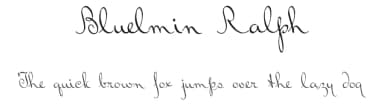 Bluelmin Ralph
The quick brown fox jumps over the lazy dog